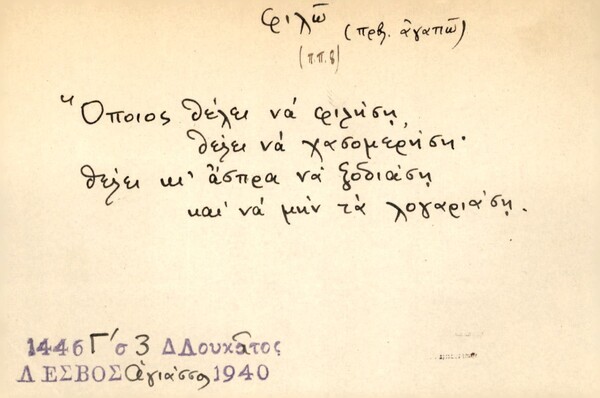 φιλῶ (πρβ. ἀγαπῶ)
(π.π. 8)
"Ὅποιος θέλει νά φιλήσῃ,
θέλει νά χασομερήσῃ·
θέλει κι' ἄσπρα νά ξοδιάσῃ
καί νά μήν τά λογαριάσῃ.
1446 Γ' σ 3 Δ Λουκᾶτος
ΛΕΣΒΟΣ Ἀγιάσσος 1940